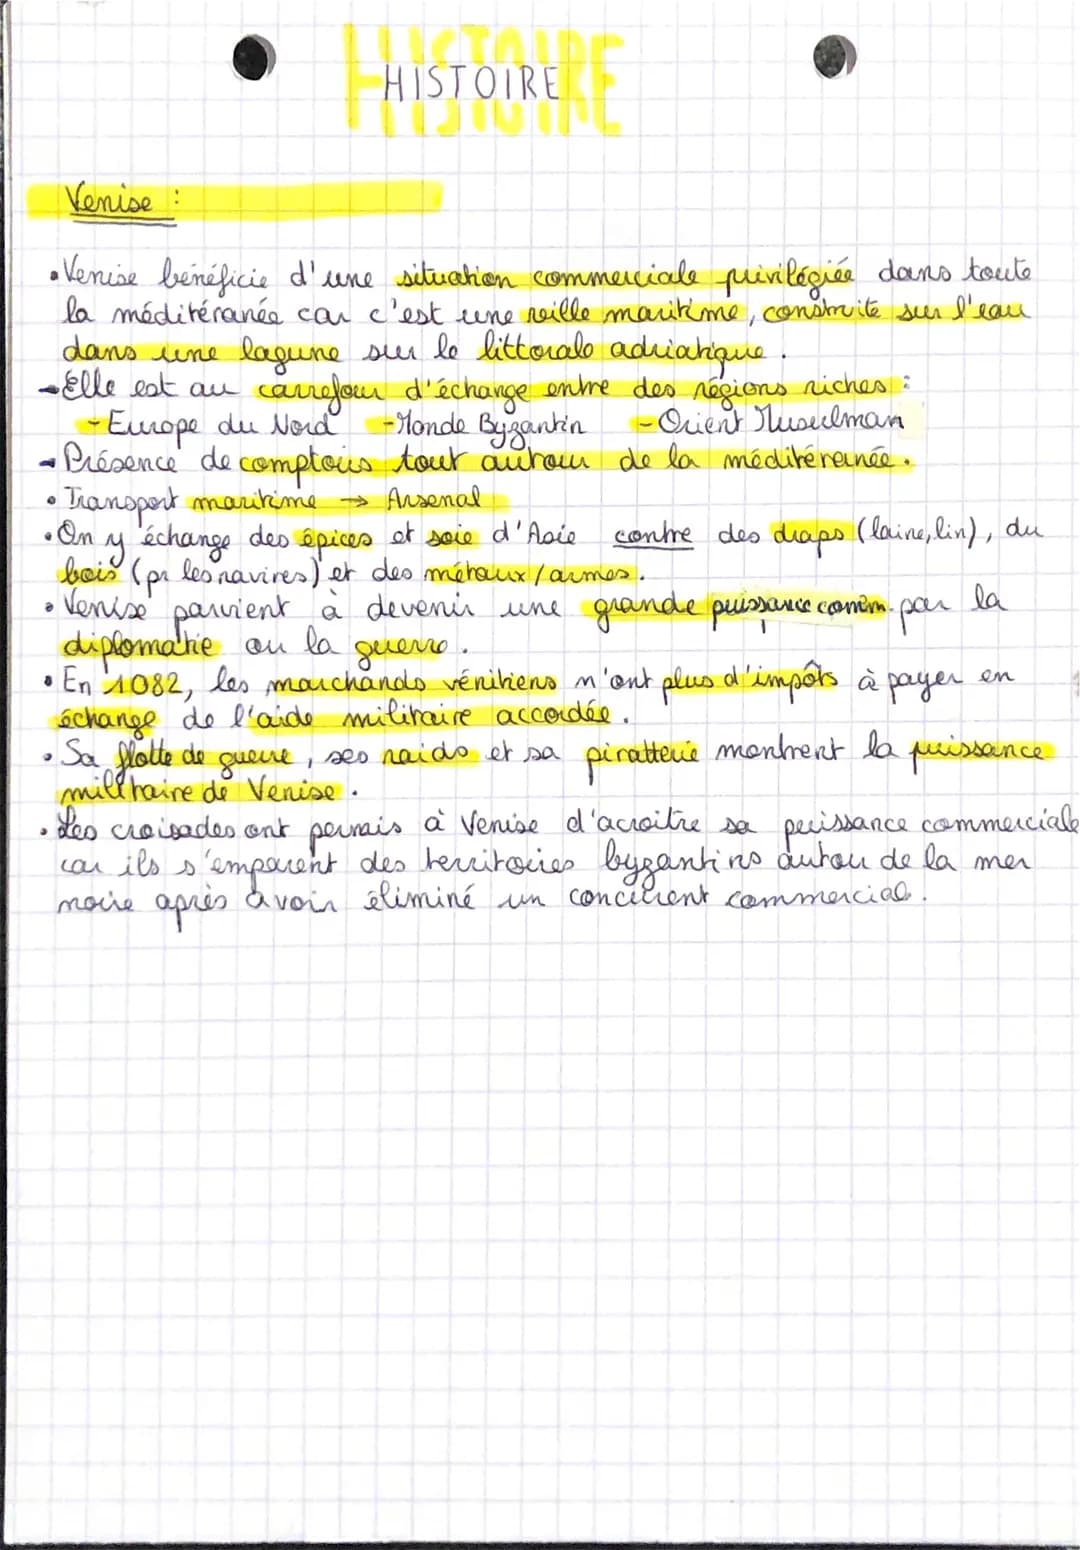 HISTOIRE
Venise :
• Venise bénéficie d'une situation commerciale privilégiée dans toute
la méditéranée car c'est une ville maritime, construite sur l'eau
dans une lagune sur le littorale adriatique.
→ Elle est au carrefour d'échange entre des régions riches :
- Europe du Nord - Monde Byzantin - Orient Musulman
→ Présence de comptoirs tout autour de la méditéranée.
• Transport maritime → Arsenal
• On y échange des épices et soie d'Asie contre des draps (laine, lin), du
bois (pr les navires) et des métaux / armes.
• Venise parvient à devenir une grande puissance comm. par la
diplomatie ou la guerre.
• En 1082, les marchands vénitiens n'ont plus d'impôts à payer en
échange de l'aide militaire accordée.
• Sa flotte de guerre, ses raids et sa piratterie montrent la puissance
militaire de Venise.
• Les croisades ont permis à Venise d'acroitre sa puissance commerciale
car ils s'emparent des territoires byzantins autour de la mer
noire après avoir éliminé un concurrent commercial.